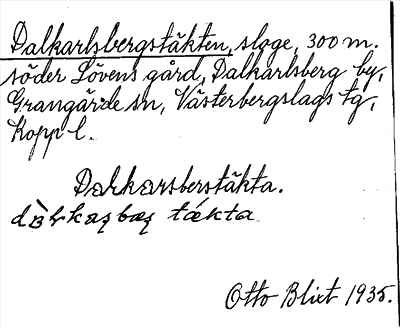 Dalkarlsbergstäkten, sloge, 300 m.
söder Lövens gård, Dalkarlsberg by,
Grangärde sn, Västerbergslags tg,
Kopp l.
Dalkarsberstäkta.
täkta
Otto Blixt 1935.